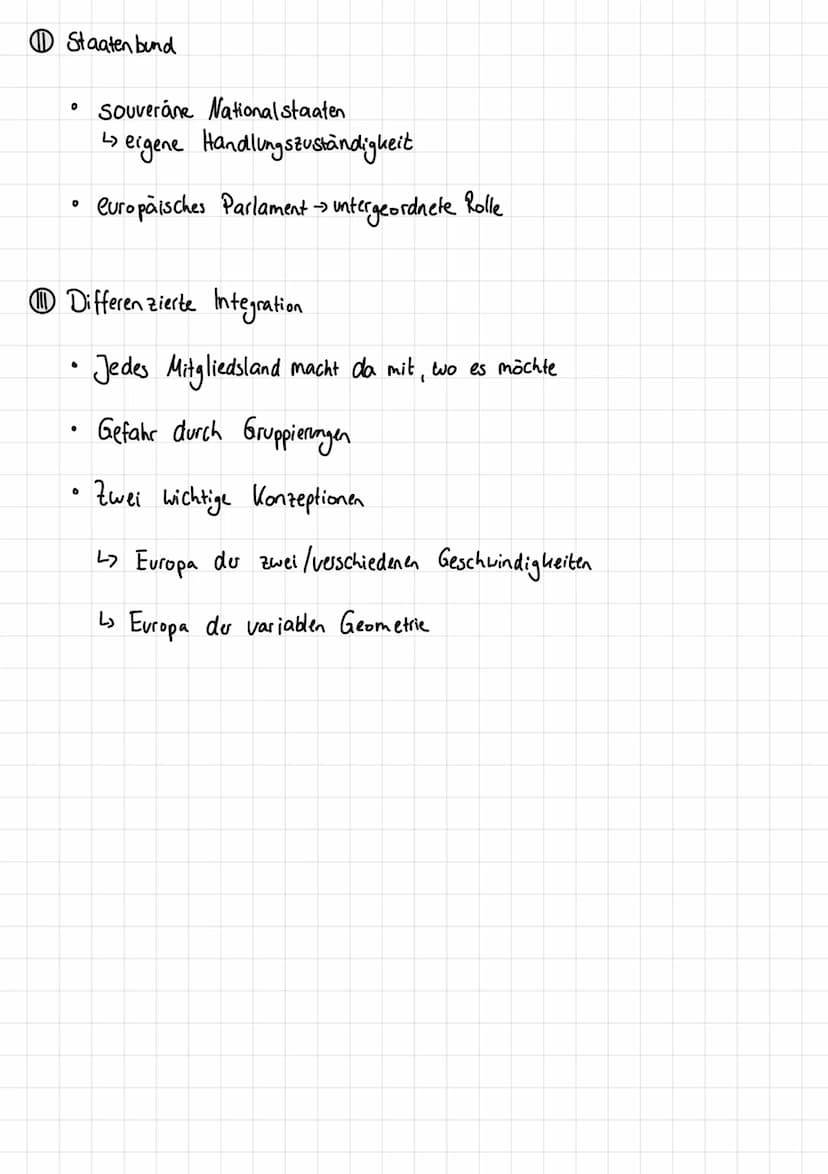 II Staatenbund
• souveräne Nationalstaaten
↳ eigene Handlungszuständigkeit
• europäisches Parlament → untergeordnete Rolle
III Differenzierte Integration
• Jedes Mitgliedsland macht da mit, wo es möchte
• Gefahr durch Gruppierungen
• Zwei wichtige Konzeptionen
↳ Europa der zwei/verschiedenen Geschwindigkeiten
↳ Europa der variablen Geometrie